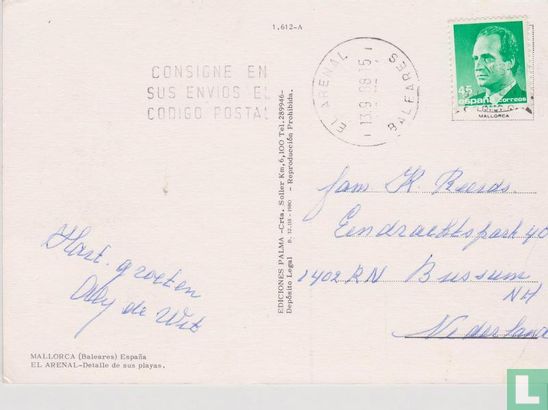 1.612-A
CONSIGNE EN
SUS ENVIOS EL
CODIGO POSTAL
EL ARENAL
BALEARES
45
españa correos
MALLORCA
EDICIONES PALMA -Crta. Soller Km,6,100 Tel.289946-
Depósito Legal B. 32.111 - 1980 - Reproducción Prohibida.
Fam K. Reerds.
Eendrachtspark 40
1402 RN Bussum
NH
Nederland
Hart. groeten
de Wit
MALLORCA (Baleares) España
EL ARENAL-Detalle de sus playas.
L